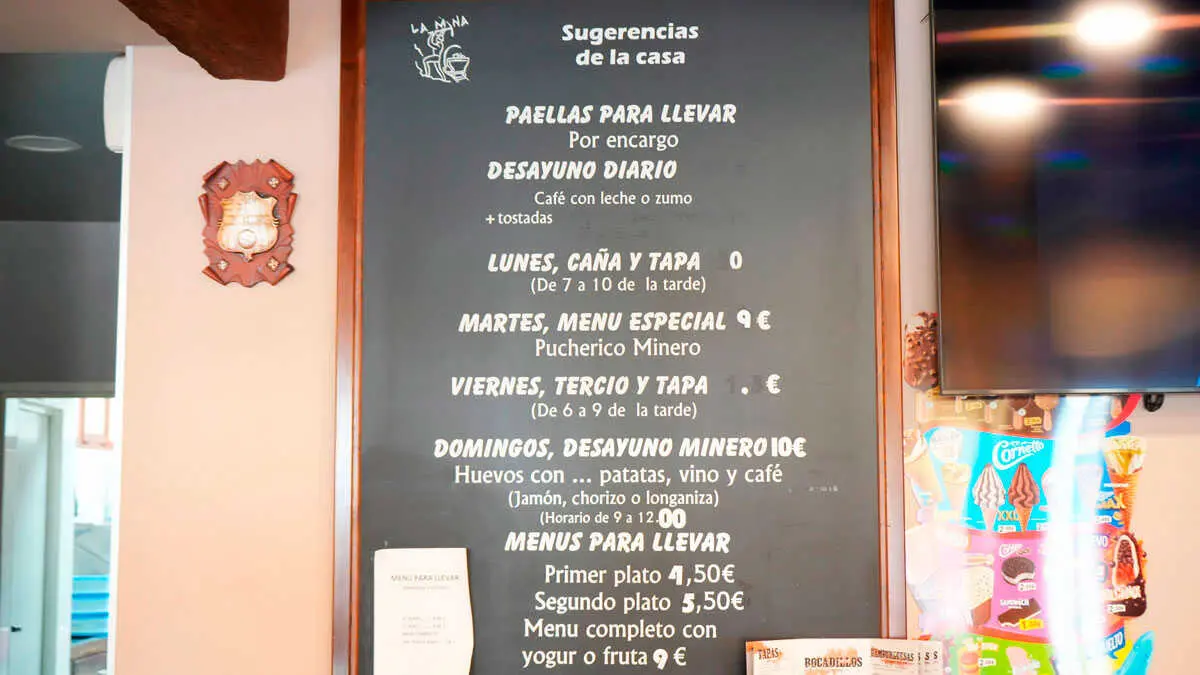 LA MINA
Sugerencias
de la casa
PAELLAS PARA LLEVAR
Por encargo
DESAYUNO DIARIO
Café con leche o zumo
+ tostadas
LUNES, CAÑA Y TAPA 0
(De 7 a 10 de la tarde)
MARTES, MENU ESPECIAL 9 €
Pucherico Minero
VIERNES, TERCIO Y TAPA . €
(De 6 a 9 de la tarde)
DOMINGOS, DESAYUNO MINERO 10€
Huevos con ... patatas, vino y café
(Jamón, chorizo o longaniza)
(Horario de 9 a 12.00
MENUS PARA LLEVAR
Primer plato 4,50€
Segundo plato 5,50€
Menu completo con
yogur o fruta 9 €
MENU PARA LLEVAR
TAPAS
BOCADILLOS
HAMBURGUESAS
Cornetto
XXL
SANDWICH